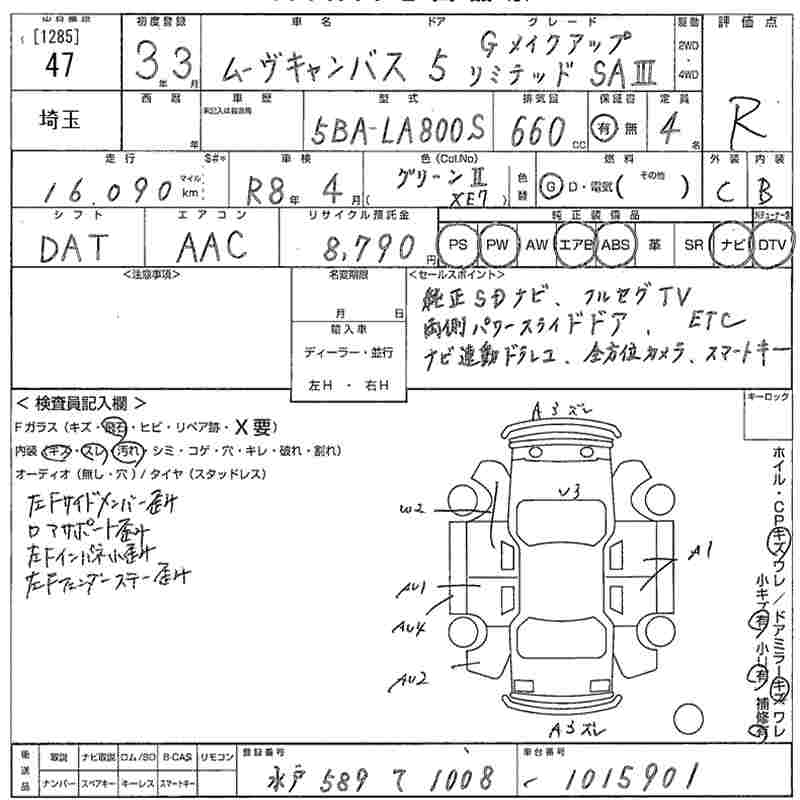 [1285]
47
初度登録
3年3月
車名
ムーヴキャンバス
ドア
5
グレード
Gメイクアップ
リミテッド SAⅢ
駆動
2WD
・
4WD
評価点
R
埼玉
西暦
年
車歴
型式
5BA-LA800S
排気量
660cc
保証書
有 無
定員
4名
走行
16,090
マイル
km
S#*
車検
R8年 4月
色(Col.No)
グリーンⅡ
( XE7 )
色替
燃料
G D・電気( その他 )
外装
C
内装
B
シフト
DAT
エアコン
AAC
リサイクル預託金
8,790円
純正装備品
PS PW AW エアB ABS 革 SR ナビ DTV
<注意事項>
名変期限
月 日
輸入車
ディーラー・並行
左H・右H
<セールスポイント>
純正SDナビ、フルセグTV
両側パワースライドドア、ETC
ナビ連動ドラレコ、全方位カメラ、スマートキー
キーロック
<検査員記入欄>
Fガラス(キズ・飛石・ヒビ・リペア跡・X要)
内装(キズ・スレ・汚れ・シミ・コゲ・穴・キレ・破れ・割れ)
オーディオ(無し・穴)/タイヤ(スタッドレス)
左Fサイドメンバー歪み
ロアサポート歪み
左Fインパネ小歪み
左Fフェンダーステー歪み
A3ズレ
U3
W2
A1
AU1
AU4
AU2
A3ズレ
ホイル・CPキズワレ/ドアミラーキズワレ
小キズ有 小凹有 補修有
後送品
取説 ナビ取説 ロム/SD B-CAS リモコン
ナンバー スペアキー キーレス スマートキー
登録番号
水戸 589 て 1008
車台番号
- 1015901